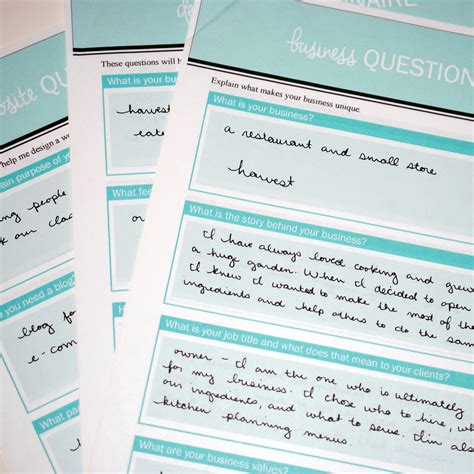 NAIRE
business QUESTION
Explain what makes your business unique.
What is your business?
a restaurant and small store
harvest
What is the story behind your business?
I have always loved cooking and grew
a huge garden. When I decided to open
I knew I wanted to make the most of th
ingredients and help others to do the sam
What is your job title and what does that mean to your clients?
owner - I am the one who is ultimately
for my business. I chose who to hire, wh
our ingredients, and what to serve. I'm als
kitchen planning menus.
What are your business values?
These questions will h
What is your busine
harvest
What fee
osite QUE
help me design a we
ain purpose of yo
ng people
our cla
o you need a blog
blog fo
e-com
What pa